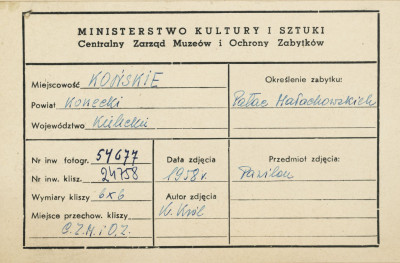 MINISTERSTWO KULTURY I SZTUKI
Centralny Zarząd Muzeów i Ochrony Zabytków
Miejscowość KOŃSKIE
Powiat Konecki
Województwo Kielecki
Określenie zabytku:
Pałac Małachowskich
Nr inw fotogr. 54677
Nr inw. klisz. 24758
Wymiary kliszy 6x6
Miejsce przechow. kliszy
C.Z.M.i O.Z.
Data zdjęcia
1958 r.
Autor zdjęcia
W. Król
Przedmiot zdjęcia:
Pawilon